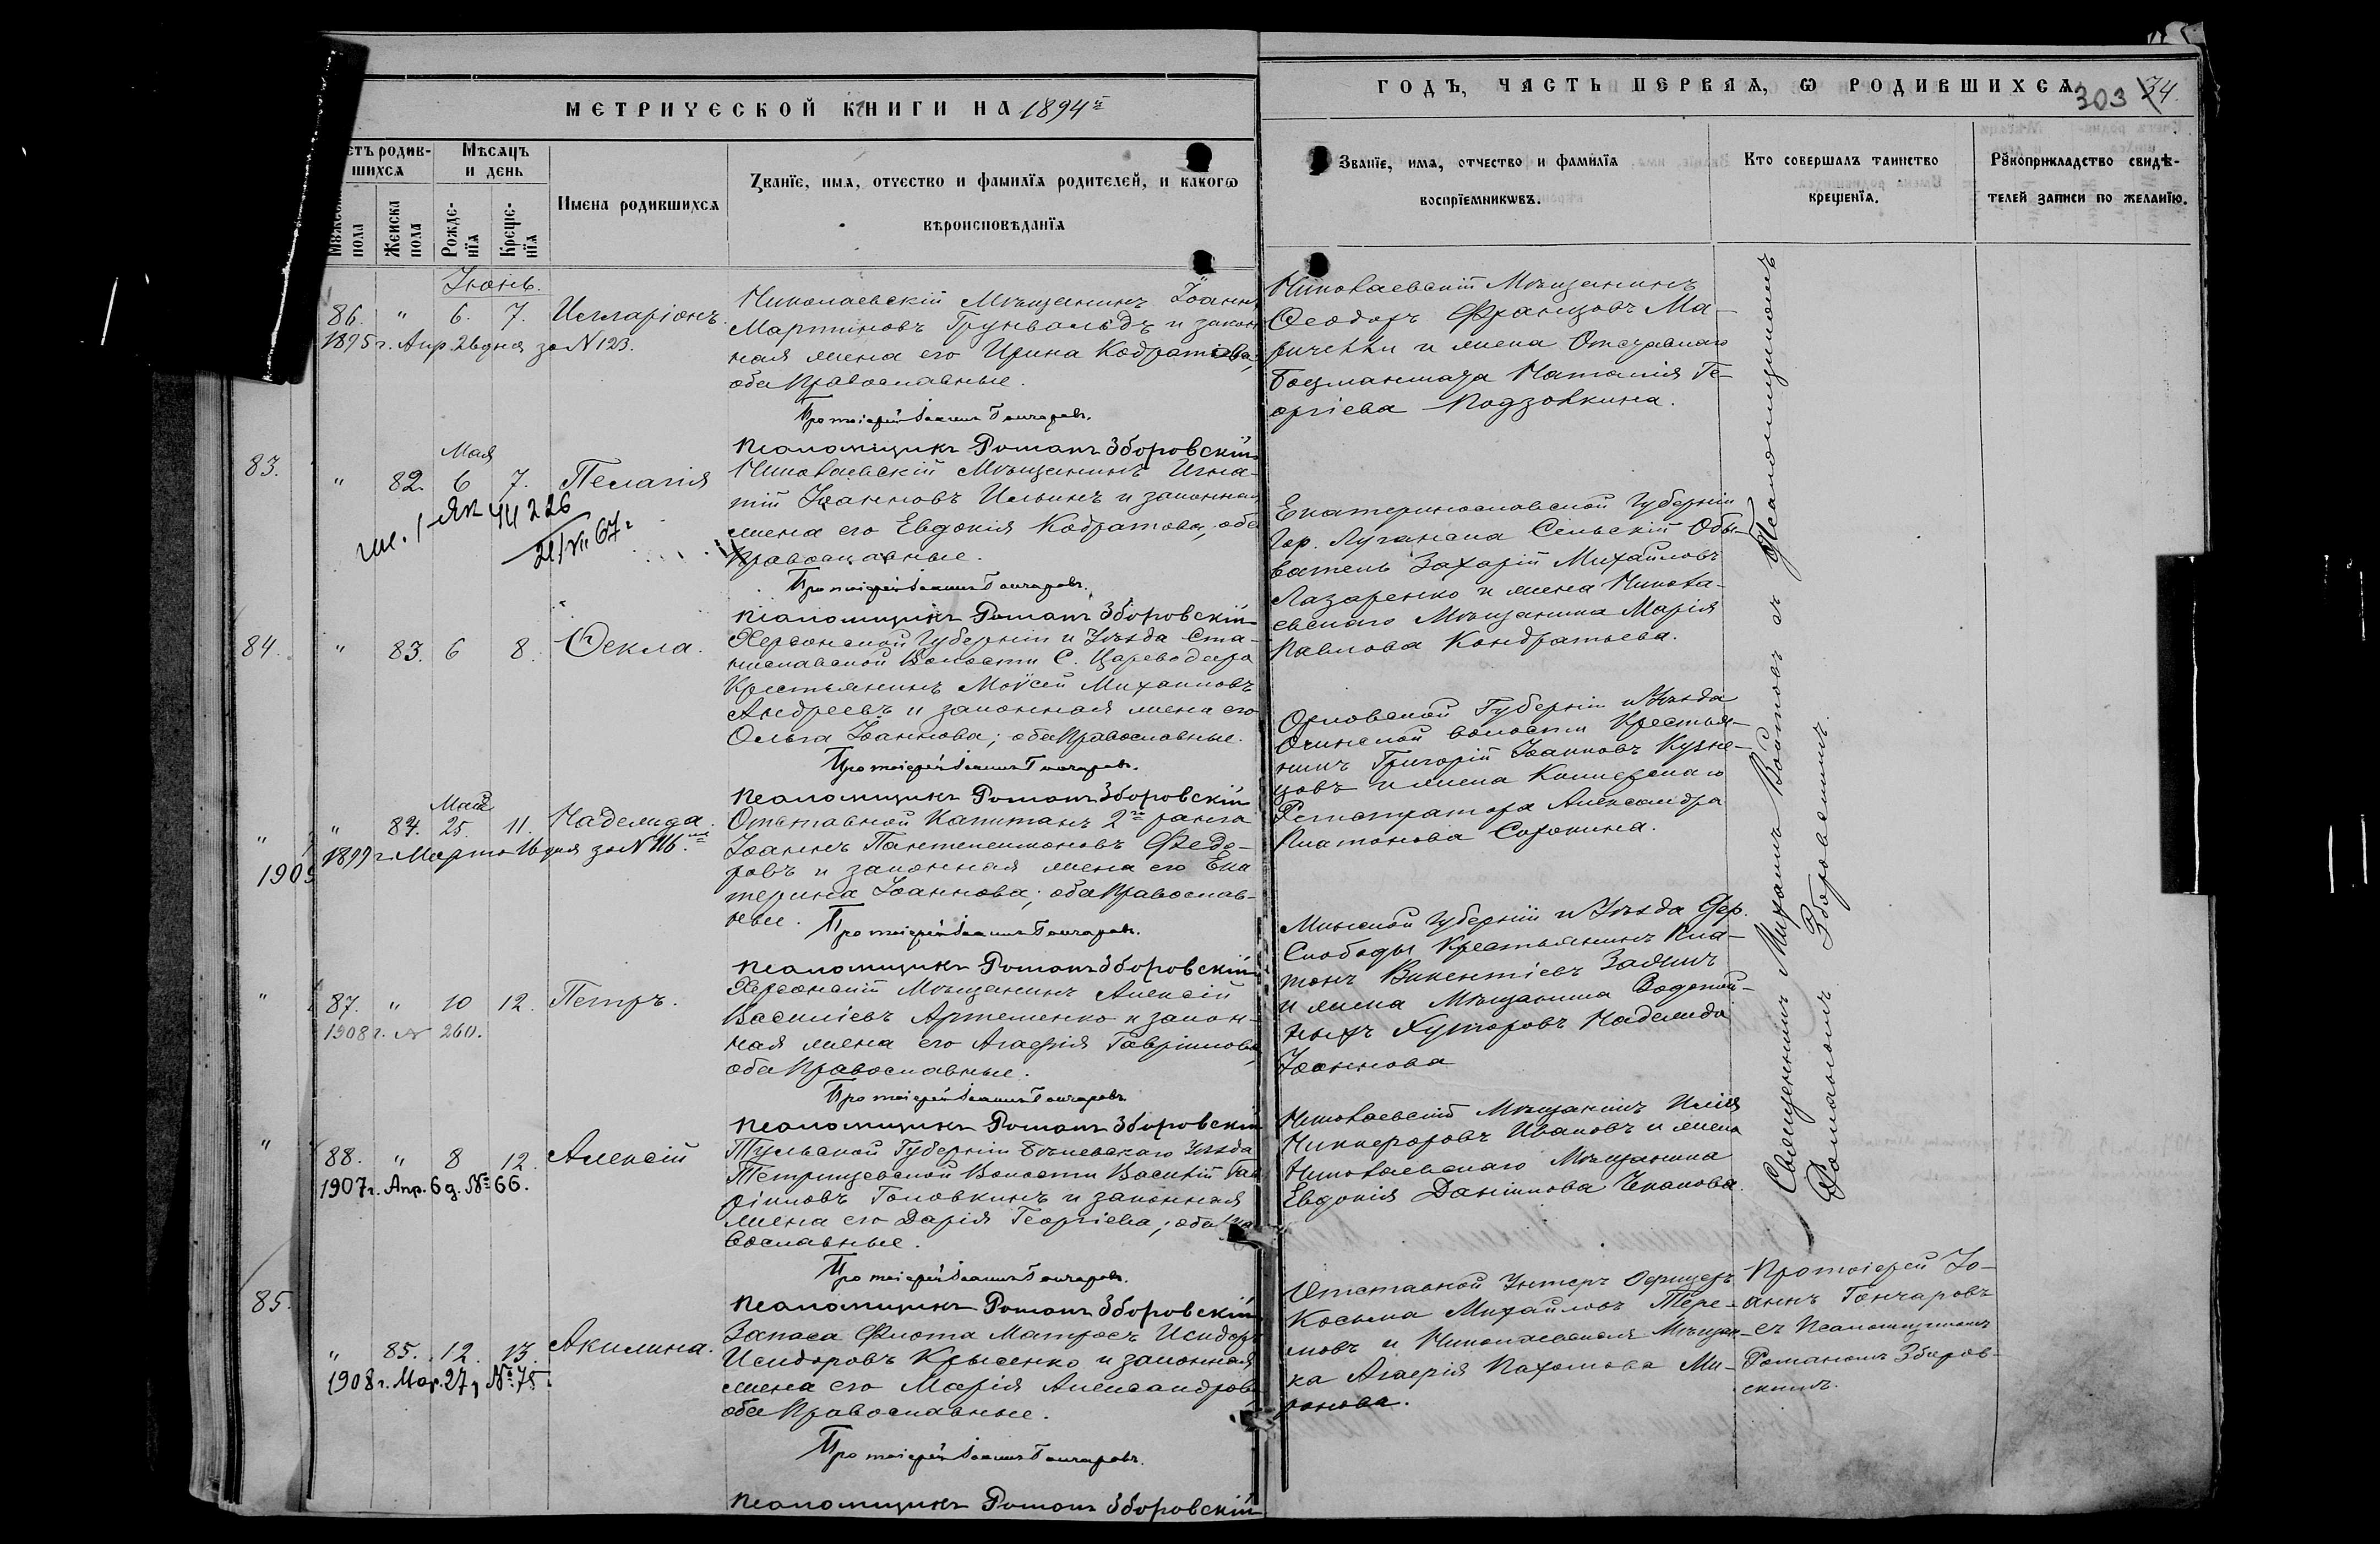 МЕТРИЧЕСКОЙ КНИГИ НА 1894й
ГОДЪ, ЧАСТЬ ПЕРВАЯ, Ѡ РОДИВШИХСЯ
303 34.
етъ родив-
шихся
Мѣсяцъ
и день
Мужеска
пола
Женска
пола
Рожде-
нїя
Креще-
нїя
Имена родившихся
Званїе, имя, отчество и фамилїя родителей, и какогѡ
вѣроисповѣданїя
Званїе, имя, отчество и фамилїя
воспрїемникѡвъ.
Кто совершалъ таинство
крещенїя.
Рꙋкоприкладство свидѣ-
телей записи по желанїю.
Іюнь.
86. " 6. 7. Илларіонъ.
1895 г. Апр. 26 дня за N 123.
Николаевскій Мѣщанинъ Іоаннъ
Мартиновъ Грунвальдъ и закон
ная жена его Ирина Кодратова,
оба Православные.
Протоіерей Іоаннъ Гончаровъ.
Псаломщикъ Романъ Зборовскій
Николаевскій Мѣщанинъ
Ѳеодоръ Францовъ Ма-
ричевъ и жена Отставнаго
Боцманмата Наталія Ге-
оргіева Подзовкина.
83.
Мая
" 82. 6 7. Пелагія
44226
21/VII 67г
Николаевскій Мѣщанинъ Игна-
тій Іоанновъ Ильинъ и законная
жена его Евдокія Кодратова, оба
Православные.
Протоіерей Іоаннъ Гончаровъ.
Псаломщикъ Романъ Зборовскій
Екатеринославской Губерніи
Гор. Луганска Сельскій Обы-
ватель Захарій Михайловъ
Лазаренко и жена Никола-
евскаго Мѣщанина Марія
Павлова Кондратьева.
84.
" 83. 6 8. Ѳекла.
Херсонской Губерніи и Уѣзда Ста-
ниславской Волости С. Цареводара
Крестьянинъ Моѵсей Михаиловъ
Андреевъ и законная жена его
Ольга Іоаннова; оба Православные.
Протоіерей Іоаннъ Гончаровъ.
Псаломщикъ Романъ Зборовскій
Орловской Губерніи и Уѣзда
волости Крестья-
нинъ Григорій Іоанновъ Кузне-
цовъ и жена Коллежскаго
Регистратора Александра
Платонова Сорокина.
Мая
" 84. 25. 11. Надежда.
1899 г. Марта 16 дня за N 116.
1909
Отставной Капитанъ 2го ранга
Іоаннъ Пантелеимоновъ Ѳедо-
ровъ и законная жена его Ека
терина Іоаннова; оба Православ-
ные.
Протоіерей Іоаннъ Гончаровъ.
Псаломщикъ Романъ Зборовскій
Минской Губерніи и Уѣзда
Слободы Крестьянинъ Пла-
тонъ Викентіевъ
и жена Мѣщанина Водопой-
ныхъ Хуторовъ Надежда
Іоаннова
" 87. " 10 12. Петръ.
1908 г. N 260.
Херсонскій Мѣщанинъ Алексій
Василіевъ Артеменко и закон-
ная жена его Агафія Гавріилова,
оба Православные.
Протоіерей Іоаннъ Гончаровъ
Псаломщикъ Романъ Зборовскій
Николаевскій Мѣщанинъ Илія
Никифоровъ Ивановъ и жена
Николаевскаго Мѣщанина
Евдокія Даніилова Чепанова.
" 88. " 8 12. Алексій
1907 г. Апр. 6 д. № 66.
Тульской Губерніи Бѣлевскаго Уѣзда
Петрищевской Волости Василій Гав
ріиловъ Головкинъ и законная
жена его Дарія Георгіева; оба Пра
вославные.
Протоіерей Іоаннъ Гончаровъ.
Псаломщикъ Романъ Зборовскій
Отставной Унтеръ Офицеръ
Косьма Михайловъ Тере-
ховъ и Николаевская Мѣщан-
ка Агафія Пахомова Ми-
ронова.
Священникъ Михаилъ Войтовъ съ Псаломщикомъ
Романомъ Зборовскимъ.
85.
" 85. 12. 13. Акилина.
1908 г. Мар. 27 д № 78.
Запаса Флота Матросъ Исидоръ
Исидоровъ Крысенко и законная
жена его Марія Александрова
оба Православные.
Протоіерей Іоаннъ Гончаровъ.
Псаломщикъ Романъ Зборовскій
Протоіерей Іо-
аннъ Гончаровъ
съ Псаломщикомъ
Романомъ Зборов-
скимъ.